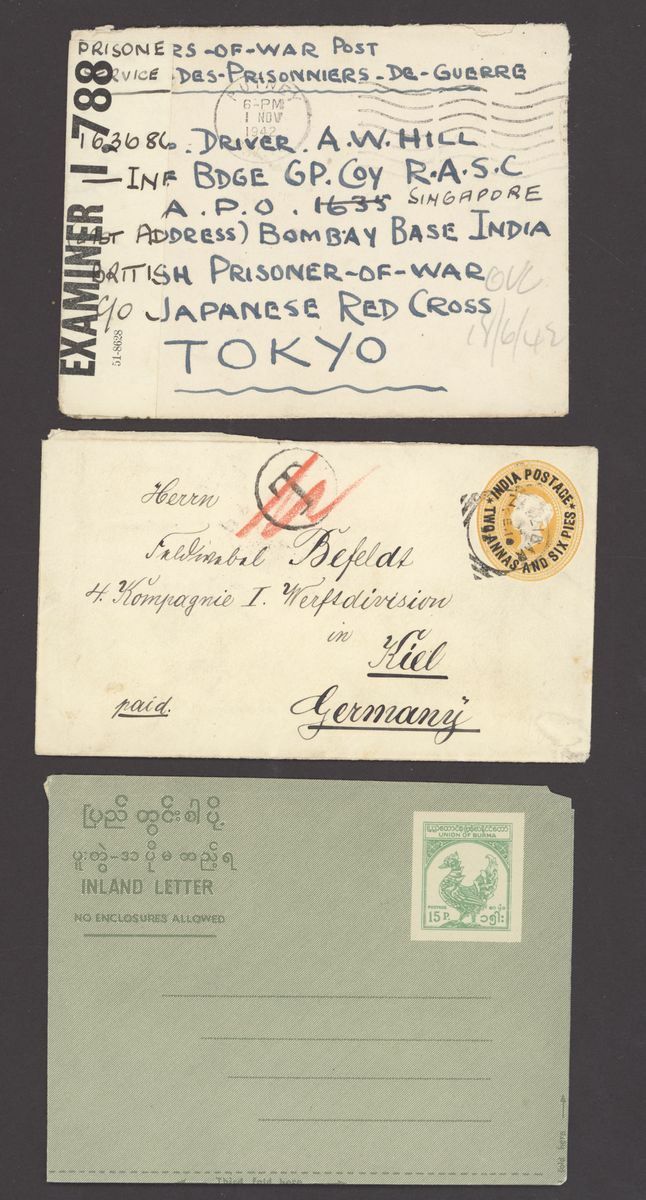 PRISONERS-OF-WAR POST
SERVICE-DES-PRISONNIERS-DE-GUERRE
PUTNEY
6-PM
1 NOV
1942
163686. DRIVER. A.W. HILL
INF BDGE GP. COY R.A.S.C
A.P.O. 1635 SINGAPORE
ADDRESS) BOMBAY BASE INDIA
BRITISH PRISONER-OF-WAR
c/o JAPANESE RED CROSS
TOKYO
18/6/42
EXAMINER 1788
51-8628
T
Herrn
Feldwebel Befeldt
4. Kompagnie I. Werftdivision
in
Kiel
paid.
Germany
INDIA POSTAGE
TWO ANNAS AND SIX PIES
ပြည်တွင်းစာပို့
ပူးတွဲ-ဒာပိုမထည့်ရ
INLAND LETTER
NO ENCLOSURES ALLOWED
ပြည်ထောင်စုမြန်မာနိုင်ငံတော်
UNION OF BURMA
POSTAGE
15 P.
၁၅ါး
fold here
Third fold here